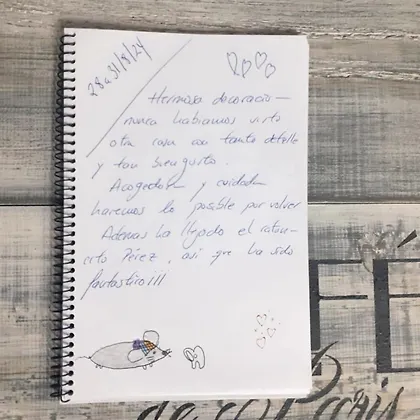 28 a 31/8/24
Hermosa decoració-
nunca habíamos visto
otra casa con tanto detalle
y tan buen gusto.
Acogedora y cuidada
haremos lo posible por volver
Además ha llegado el raton-
cito Pérez, así que ha sido
fantástico!!!
de
Paris